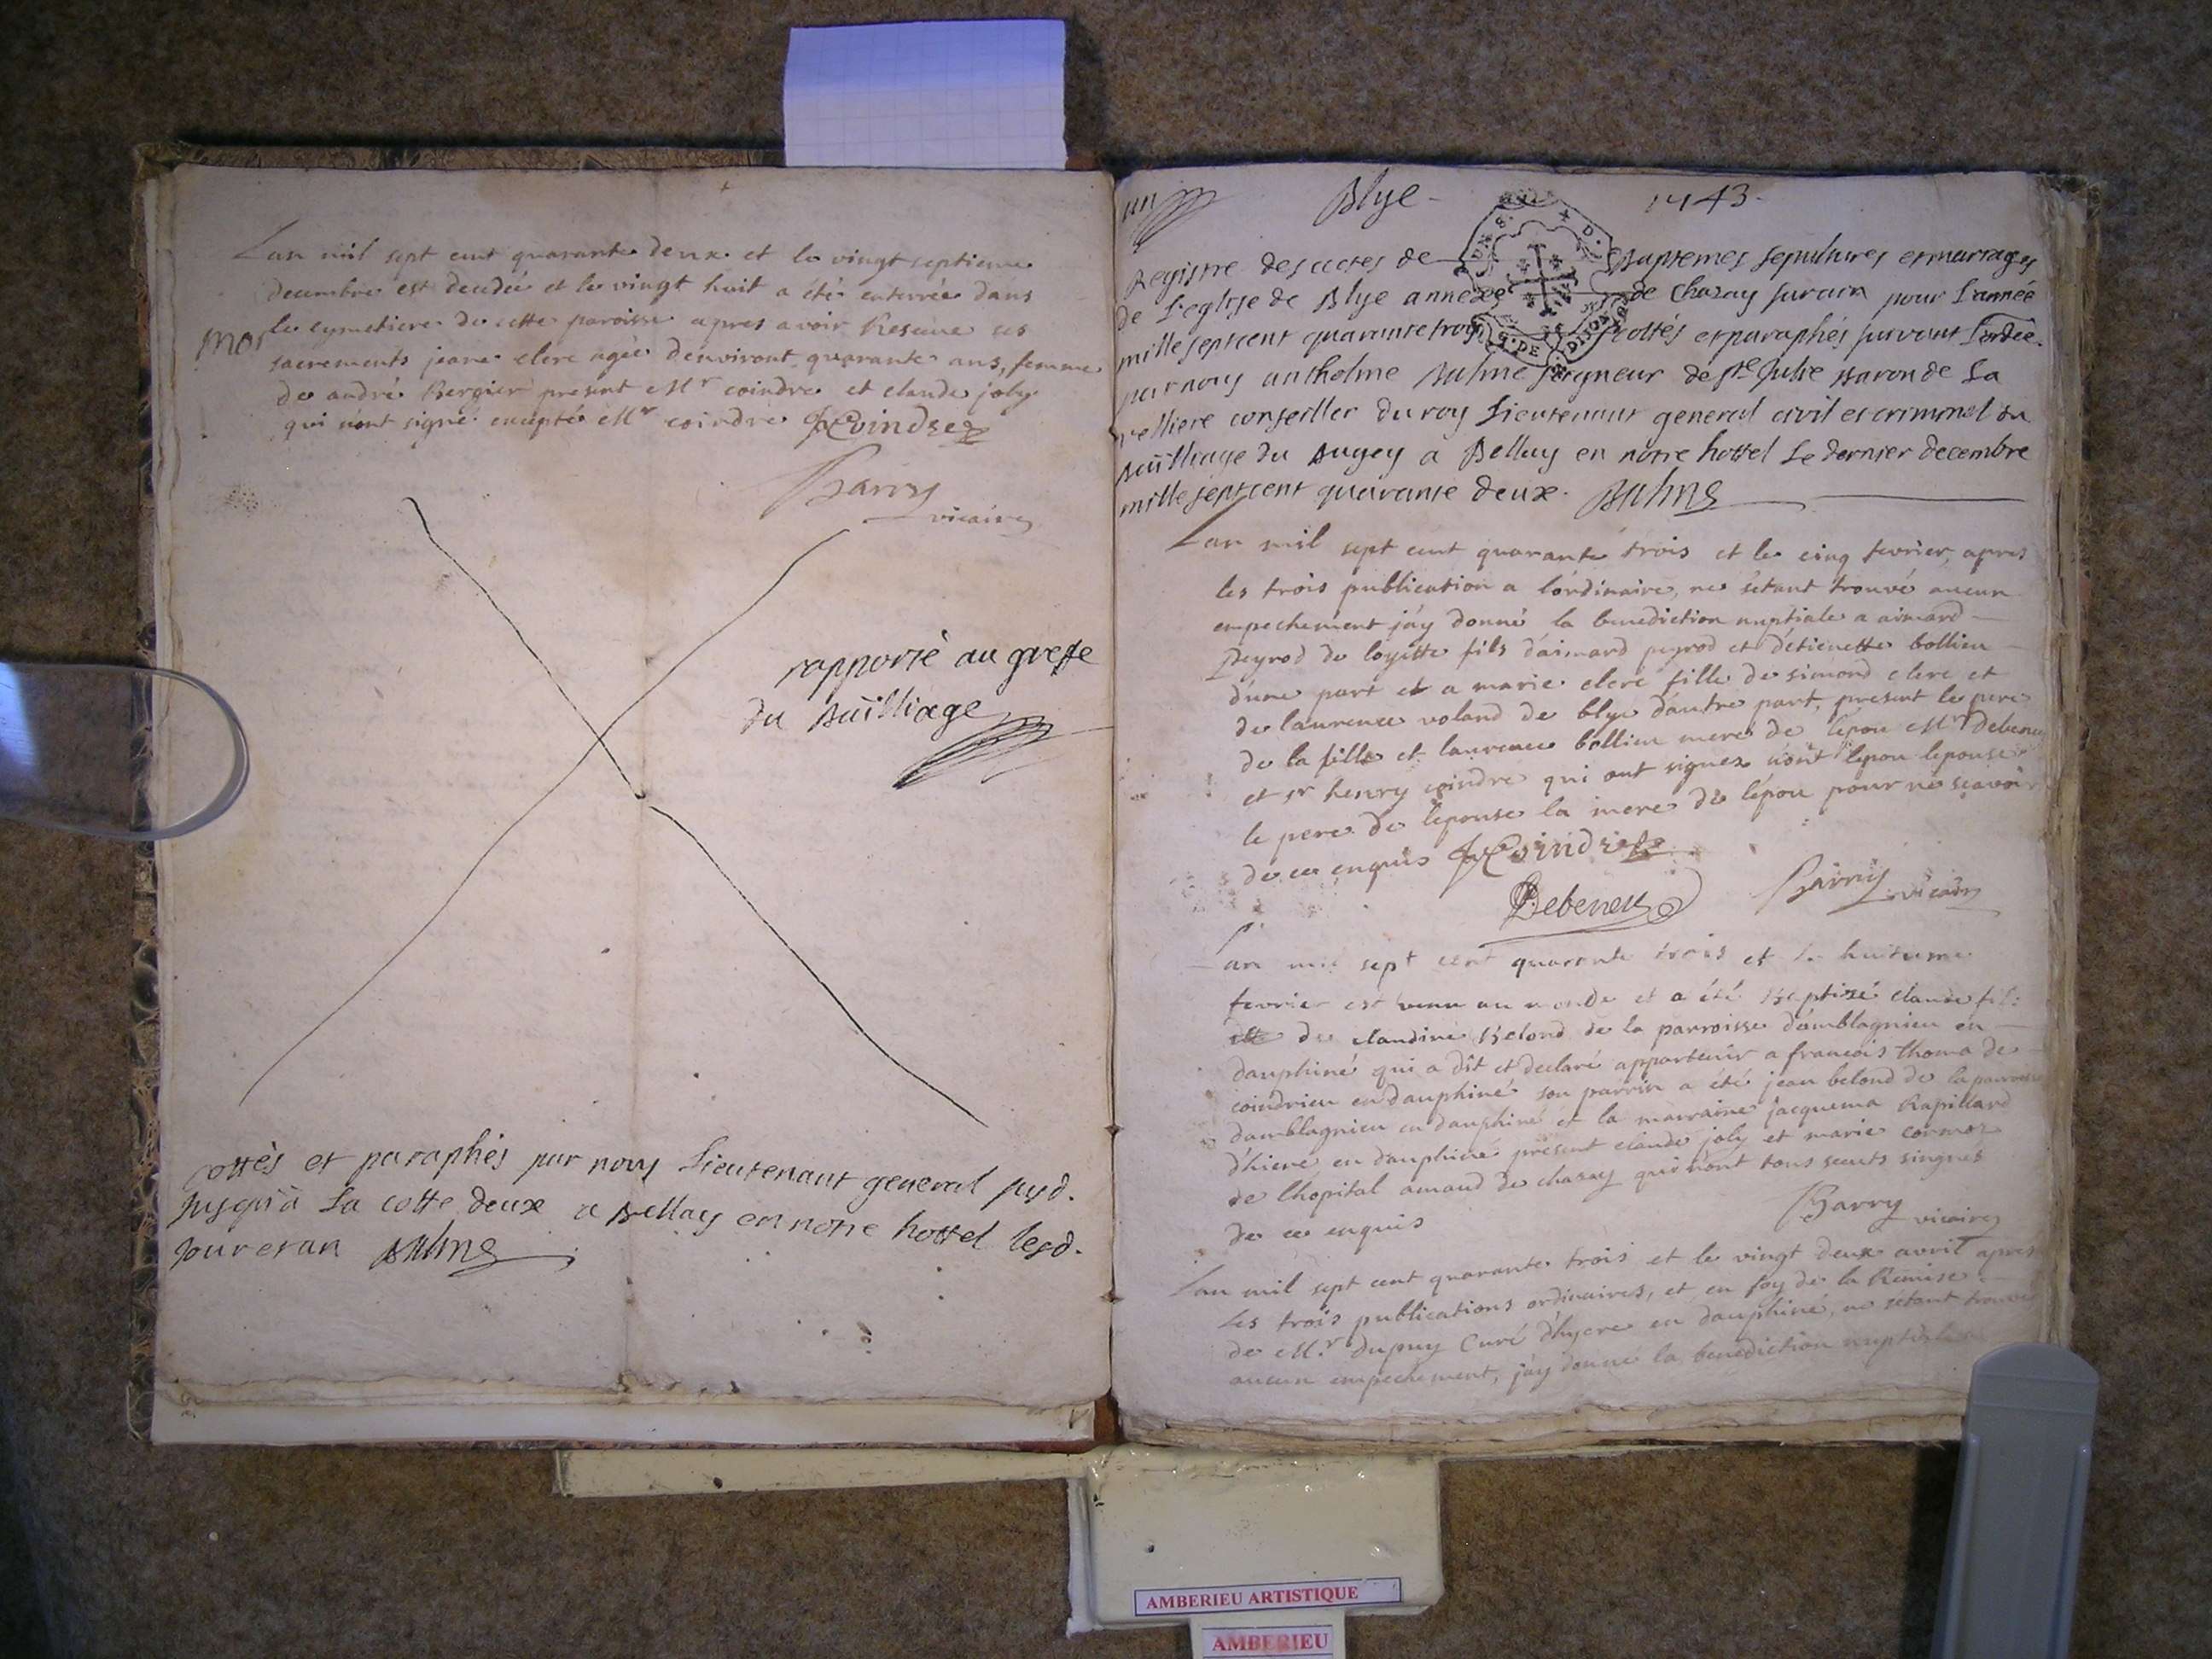 Lan mil sept cent quarante deux et le vingt septieme
decembre est decedée et le vingt huit a été enterrée dans
le cymetiere de cette paroisse apres avoir Reseuve ses
mor
sacrements jeane clerc agée denviront quarante ans, femme
de andré Bergier present Mr coindre et claude joly
qui nont signé excepté Mr coindre Coindre
Barry
vicaire
rapporté au greffe
du Bailliage
cottés et paraphés par nous Lieutenant general susd.
Jusqu'à La cotte deux a Bellay en notre hottel lesd.
jour et an Balme
un
Blye 1743.
Registre des actes de Baptemes sepultures et mariages
de L'eglise de Blye annexe de Chazay sur ain pour L'année
mille sept cent quarante trois cottés et paraphés suivant L'ordce.
par nous anthelme Balme seigneur de Ste Julie Baron de La
velliere conseiller du roy Lieutenant general civil et criminel au
Bailliage du Bugey a Bellay en notre hottel Le dernier decembre
mille sept cent quarante deux. Balme
Lan mil sept cent quarante trois et le cinq fevrier, apres
les trois publication a lordinaire, ne s'etant trouvé aucun
empechement j'ay donné la benediction nuptiale a aimard
Peyrod de loyette fils d'aimard peyrod et d'etienette bollieu
d'une part et a marie clerc fille de simond clerc et
de laurence voland de blye dautre part, present le pere
de la fille et laurence bollieu mere de lepou Mr Debeney
et sr henry coindre qui ont signez nont lepou lepouse
le pere de lepouse la mere de lépou pour ne scavoir
de ce enquis Coindre
Debeney
Barry vicaire
Lan mil sept cent quarante trois et le huitieme
fevrier est venu au monde et a été Baptizé claude fils
de claudine Belond de la parroisse d'amblagnieu en
dauphiné qui a dit et declaré appartenir a francois thoma de
coindrieu en dauphiné son parrin a été jean belond de la parroisse
damblagnieu en dauphiné et la marraine jacquema Rapillard
d'hiere en dauphiné present claude joly et marie cormoz
de lhopital amaud de chazay qui nont tous sceuts singnes
de ce enquis
Barry vicaire
Lan mil sept cent quarante trois et le vingt deux avril apres
les trois publications ordinaires, et en foy de la Remise
de Mr. dupuy Curé d'hyere en dauphiné, ne sétant trouvé
aucun empechement, j'ay donné la benediction nuptiale
S. DE DIJON
AMBERIEU ARTISTIQUE
AMBERIEU